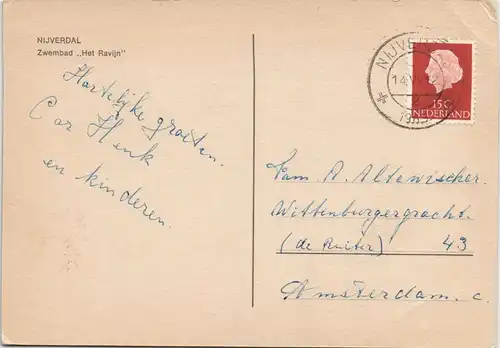 NIJVERDAL
Zwembad „Het Ravijn"
Hartelijke groeten.
Cor Henk
en kinderen.
NIJVE
14 VI 12
15c
NEDERLAND
Fam A. Altewischer.
Wittenburgergracht.
(de Ruiter) 43
Amsterdam. c.